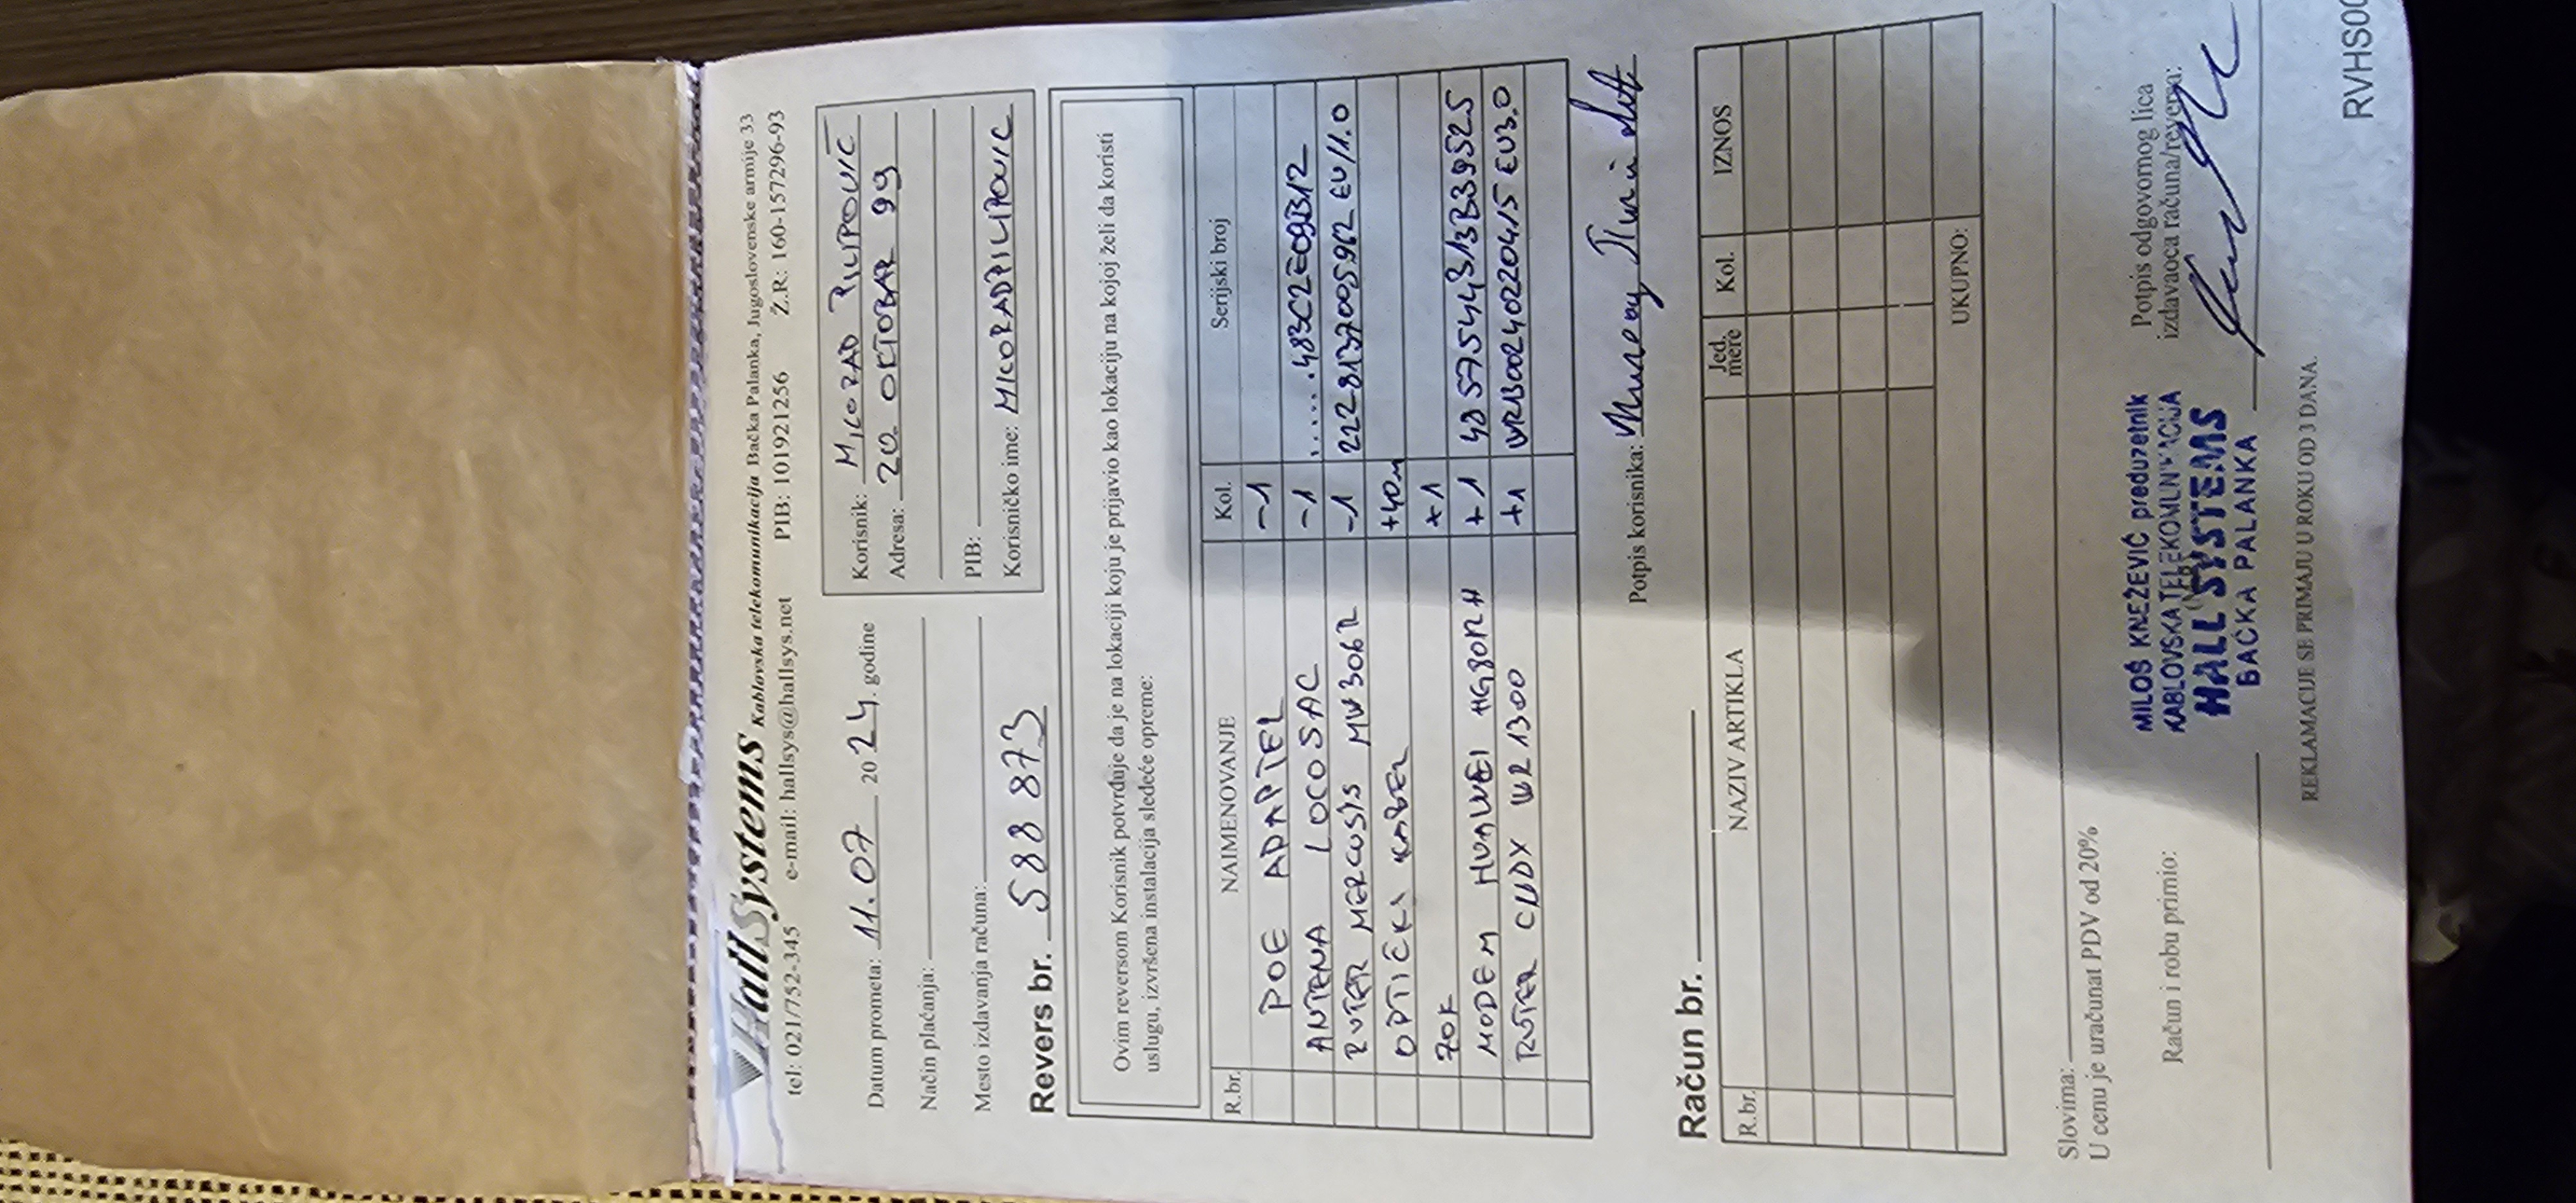 HallSystems Kablovska telekomunikacija Bačka Palanka, Jugoslovenske armije 33
tel: 021/752-345 e-mail: hallsys@hallsys.net PIB: 101921256 Ž.R: 160-157296-93
Datum prometa: 11.07 2024. godine
Način plaćanja:
Mesto izdavanja računa:
Revers br. 588 873
Korisnik: MILORAD PILIPOVIĆ
Adresa: 20. OKTOBAR 99
PIB:
Korisničko ime: MILORADPILIPOVIC
Ovim reversom Korisnik potvrđuje da je na lokaciji koju je prijavio kao lokaciju na kojoj želi da koristi
uslugu, izvršena instalacija sledeće opreme:
R.br. NAIMENOVANJE Kol. Serijski broj
POE ADAPTEL -1
ANTENA LOCO5AC -1 .....483C2E09B12
RUTER MERCUSYS MW306R -1 2228137005962 EU/1.0
OPTIČKI KABEL +40m
ZOK +1
MODEM HUAWEI HG8010H +1 4857544313B39525
RUTER CUDY WR1300 +1 WR1300240220415 EU3.0
Potpis korisnika:
Račun br.
R.br. NAZIV ARTIKLA Jed. mere Kol. IZNOS
UKUPNO:
Slovima:
U cenu je uračunat PDV od 20%
Račun i robu primio:
MILOŠ KNEŽEVIĆ preduzetnik
KABLOVSKA TELEKOMUNIKACIJA
HALL SYSTEMS
BAČKA PALANKA
Potpis odgovornog lica
izdavaoca računa/reversa:
REKLAMACIJE SE PRIMAJU U ROKU OD 3 DANA.
RVHS00